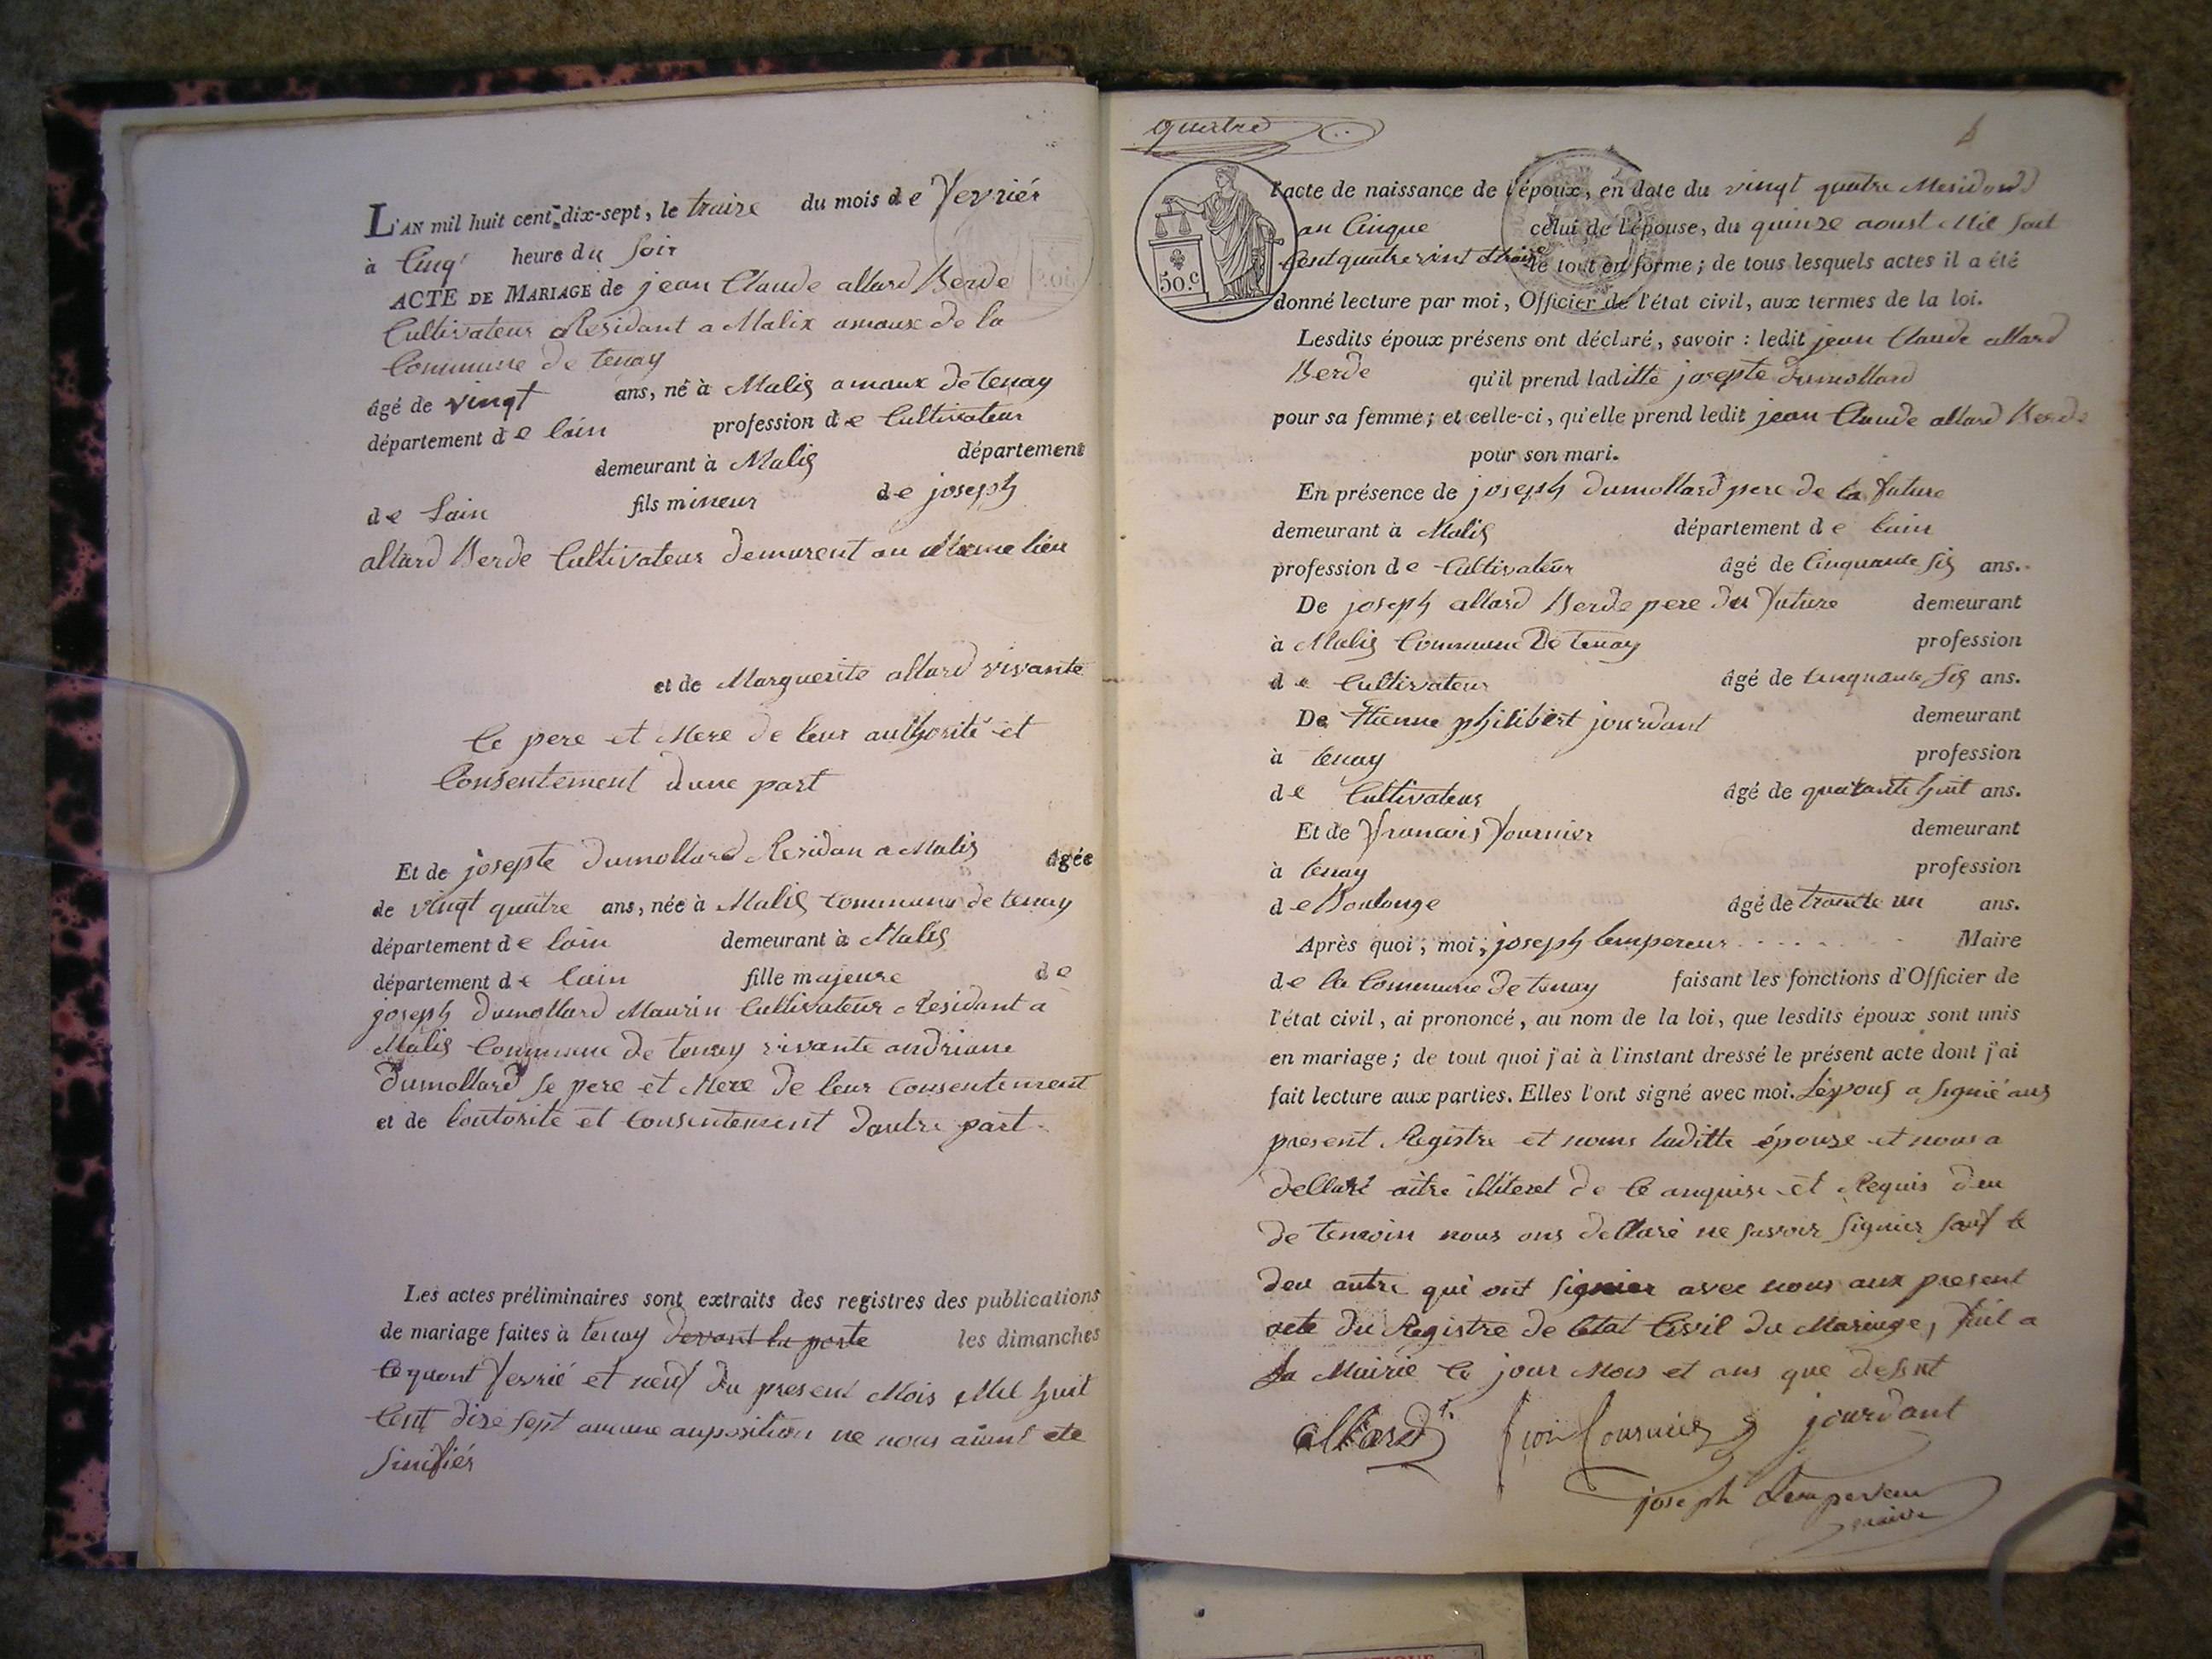 L'AN mil huit cent dix-sept, le traize du mois de fevriér
à Cinq heure du soir
ACTE DE MARIAGE de jean Claude allard Berde
Cultivateur Residant a Malix amaux de la
Commune de tenay
âgé de vingt ans, né à Malis amaux de tenay
département de lain profession de Cultivateur
demeurant à Malis département
de Lain fils mineur de joseph
allard Berde Cultivateur demurent au Meme lieu
et de Marguerite allard vivante
le pere et Mere de leur authorité et
Consentement dune part
Et de josepte dumollard Residan a Malis âgée
de vingt quatre ans, née à Malis Commune de tenay
département de lain demeurant à Malis
département de lain fille majeure de
joseph dumollard Maurin Cultivateur Residant a
Malis Commune de tenay vivante andriane
dumollard se pere et Mere de leur Consentement
et de loutorité et Consentement dautre part
Les actes préliminaires sont extraits des registres des publications
de mariage faites à tenay devant la porte les dimanches
fevrié et neuf du present Mois Mil huit
Cent dize sept aucune auposition ne nous aiant ete
sinifiér
quatre
50.c
l'acte de naissance de l'époux, en date du vingt quatre Mesidord
an Cinque celui de l'épouse, du quinze aoust Mil sait
Cent quatre vint traize le tout en forme; de tous lesquels actes il a été
donné lecture par moi, Officier de l'état civil, aux termes de la loi.
Lesdits époux présens ont déclaré, savoir : ledit jean Claude allard
Berde qu'il prend laditte josepte dumollard
pour sa femme; et celle-ci, qu'elle prend ledit jean Claude allard Berde
pour son mari.
En présence de joseph dumollard pere de la future
demeurant à Malis département de lain
profession de Cultivateur âgé de Cinquante sis ans.
De joseph allard Berde pere du future demeurant
à Malis Commune De tenay profession
de Cultivateur âgé de Cinquante sis ans.
De Etienne philibert jourdant demeurant
à tenay profession
de Cultivateur âgé de quarante huit ans.
Et de francois fournier demeurant
à tenay profession
de Boulonge âgé de trante un ans.
Après quoi, moi, joseph lempereur Maire
de la Commune de tenay faisant les fonctions d'Officier de
l'état civil, ai prononcé, au nom de la loi, que lesdits époux sont unis
en mariage; de tout quoi j'ai à l'instant dressé le présent acte dont j'ai
fait lecture aux parties. Elles l'ont signé avec moi. Lépous a signié aus
present Registre et nouns laditte épouse et nous a
dellaré aitre illiteret de le anquise et Requis deu
de temoin nous ons dellaré ne savoir signier sauf le
deu autre qui ont signier avec nous aux present
acte du Registre de letat Civil du Mariage, fait a
la Mairie le jour Mois et ans que desut
allard fçois fournier jourdant
joseph Lempereur
maire